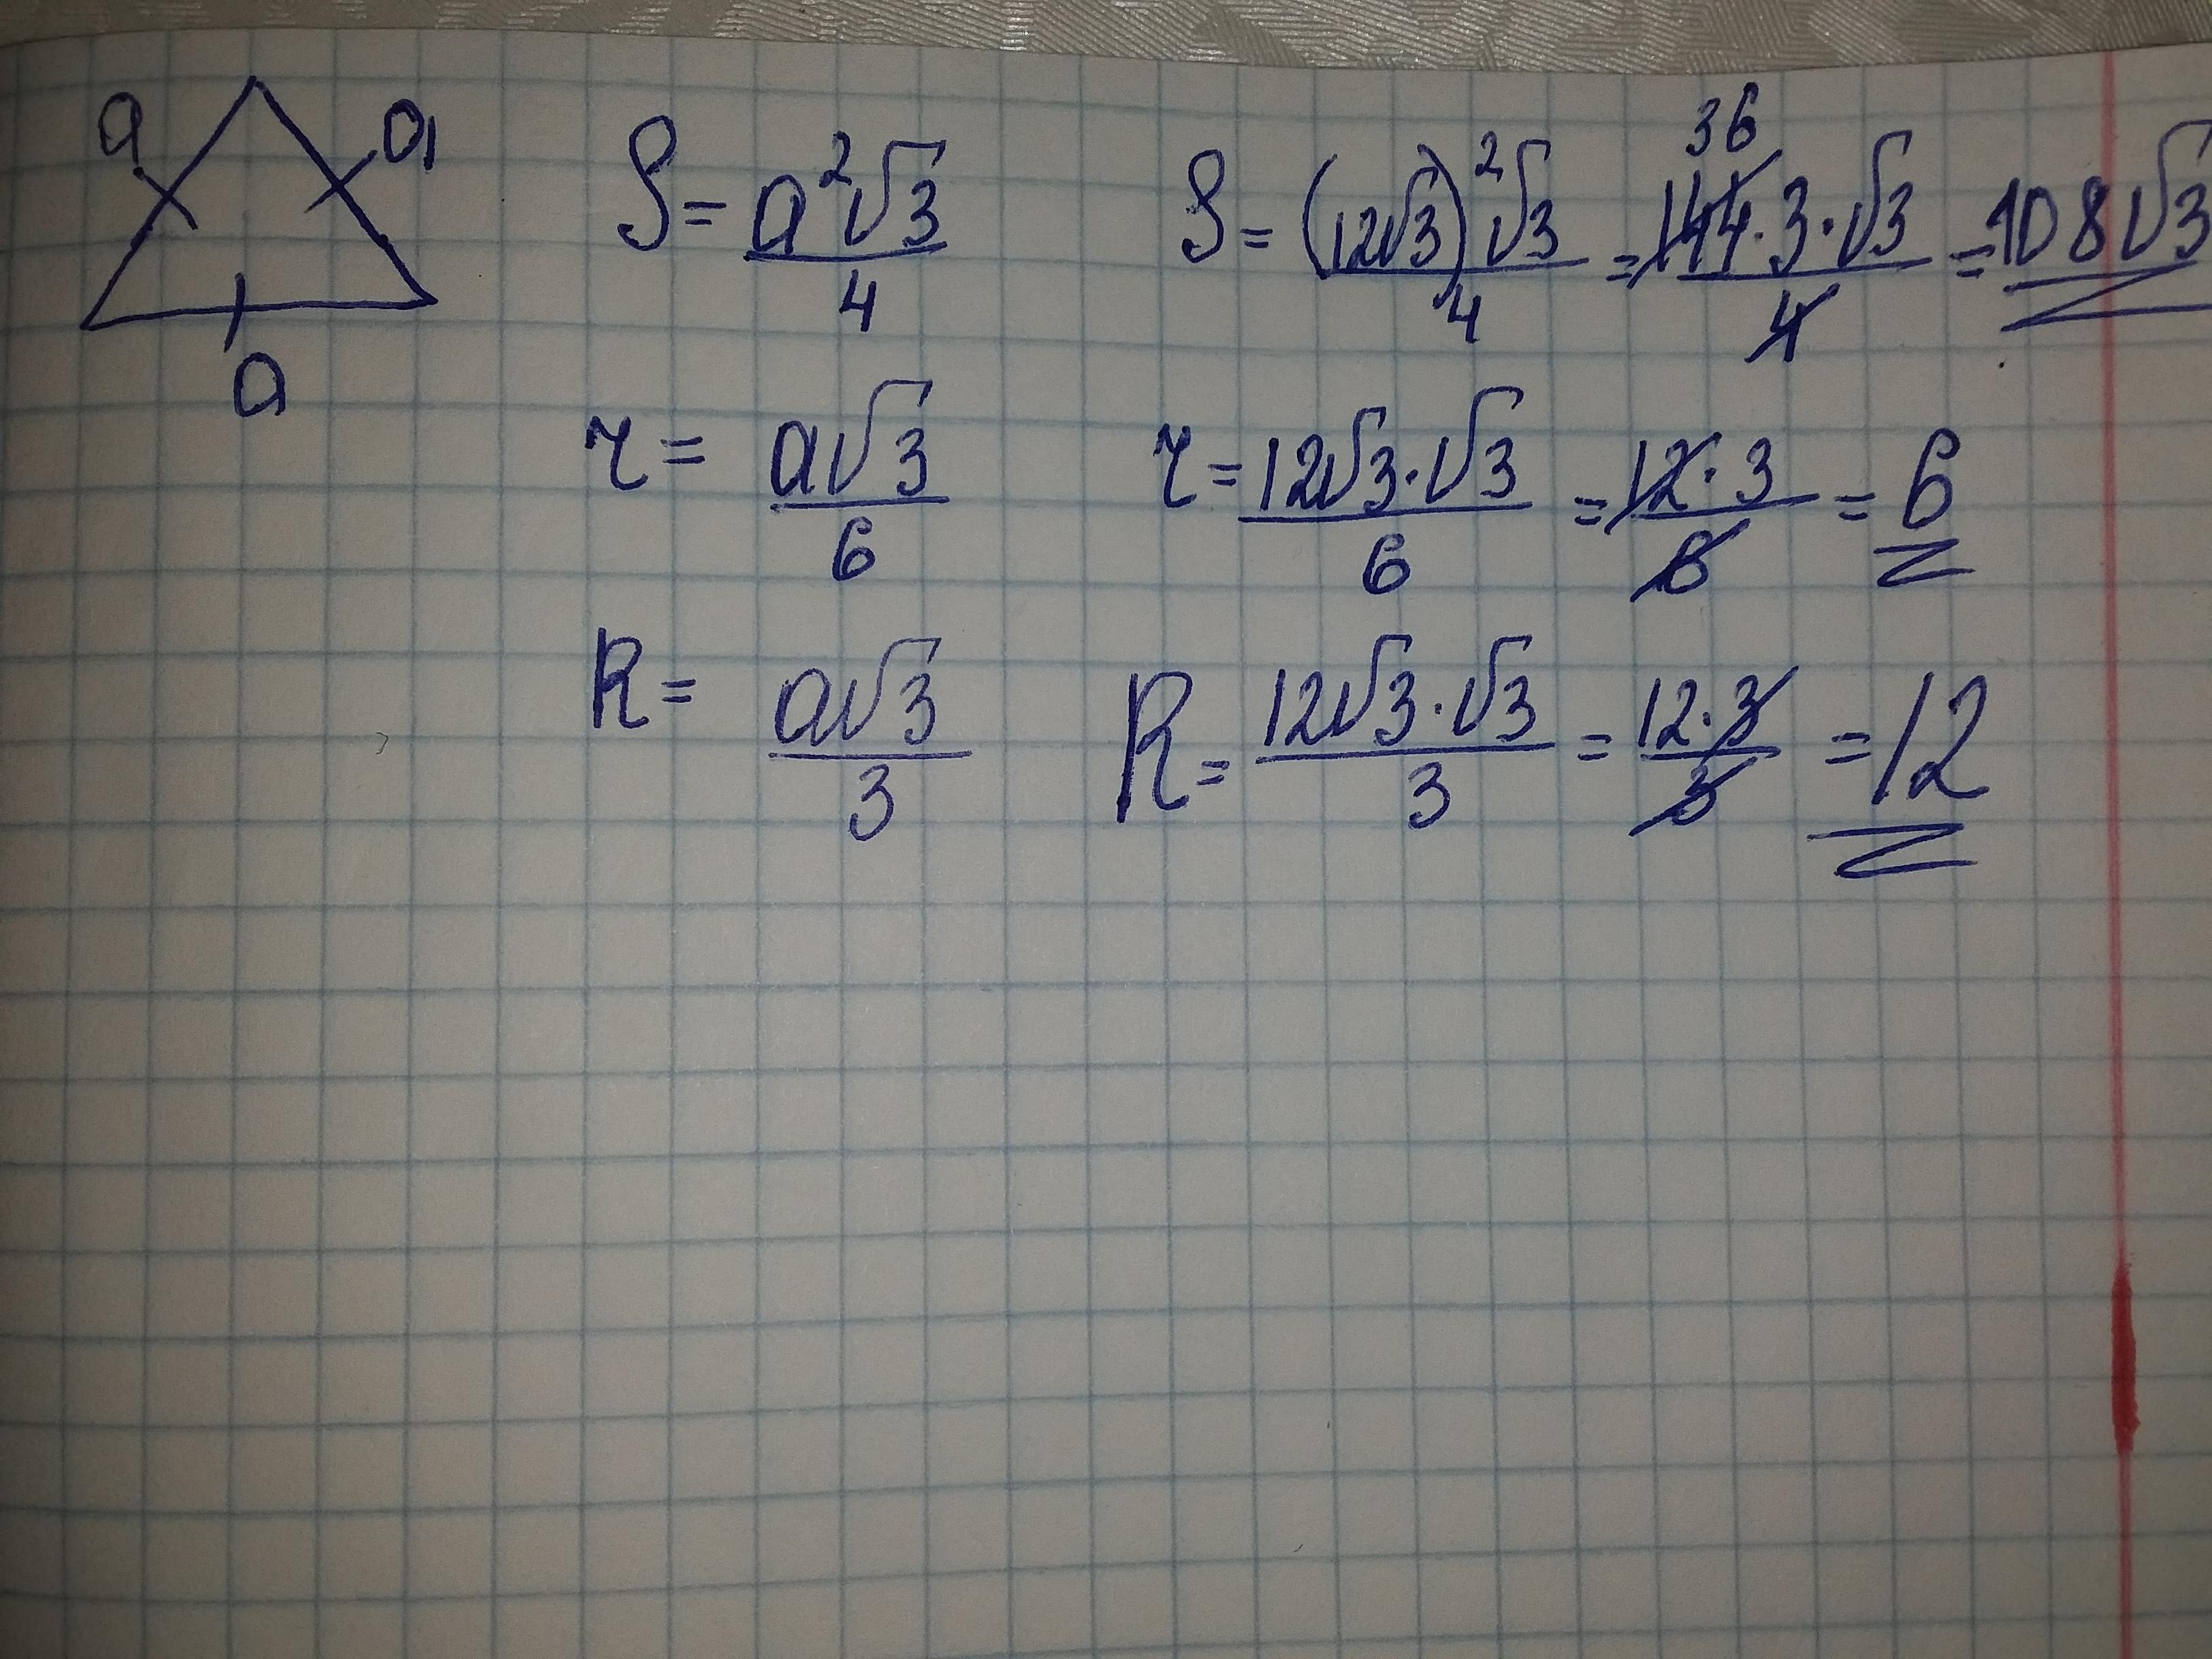 a a
a
S = a²√3/4 S = (12√3)²√3/4 = 36 144·3·√3/4 = 108√3
r = a√3/6 r = 12√3·√3/6 = 12·3/6 = 6
R = a√3/3 R = 12√3·√3/3 = 12·3/3 = 12